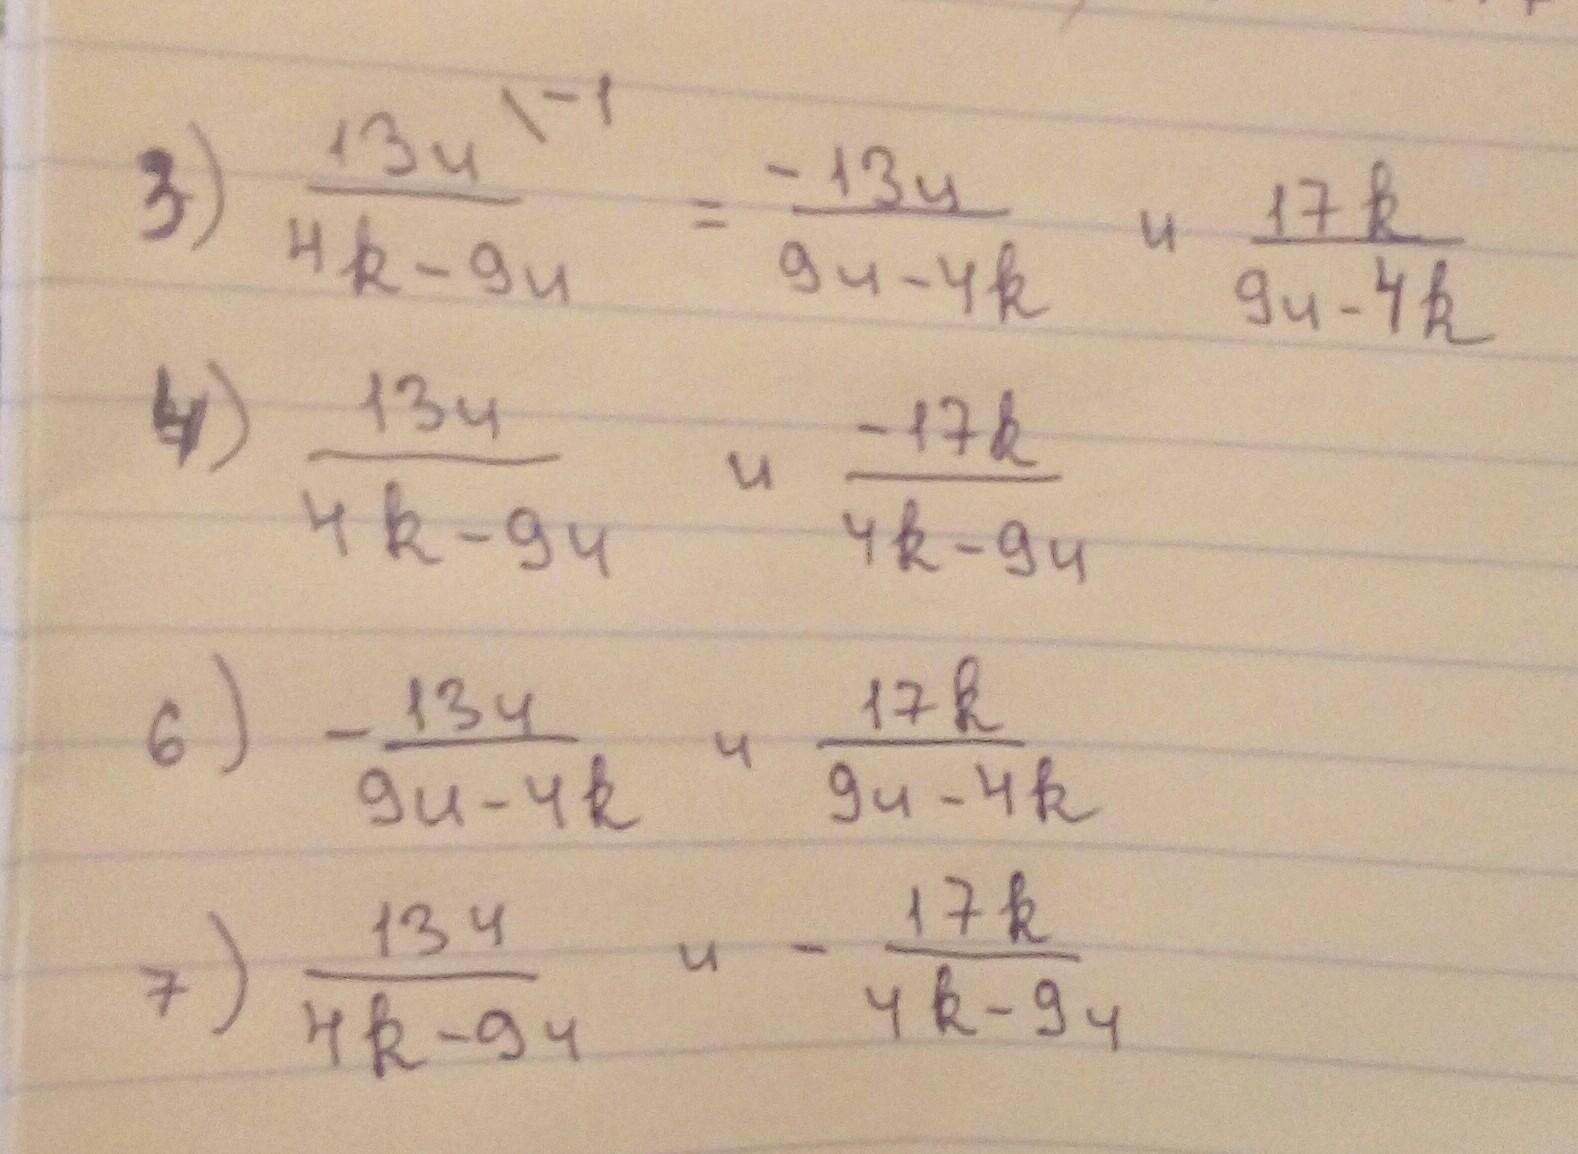 3) \frac{13u}{4k-9u}^{\-1} = \frac{-13u}{9u-4k} и \frac{17k}{9u-4k}
4) \frac{13u}{4k-9u} и \frac{-17k}{4k-9u}
6) -\frac{13u}{9u-4k} и \frac{17k}{9u-4k}
7) \frac{13u}{4k-9u} и -\frac{17k}{4k-9u}